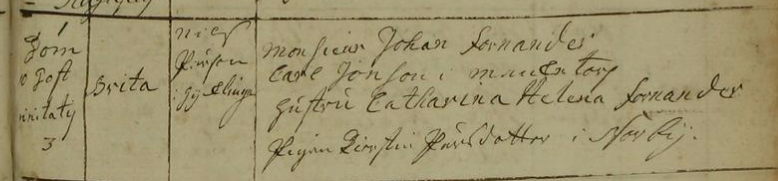 Dom
p post
trinitaty
3
Brita
nils
Pärson
i
Monsieur Johan Fornander
Carl Jonson i
hustru Catharina Helena Fornander
Pigan Kierstin Pärsdotter i Norby.